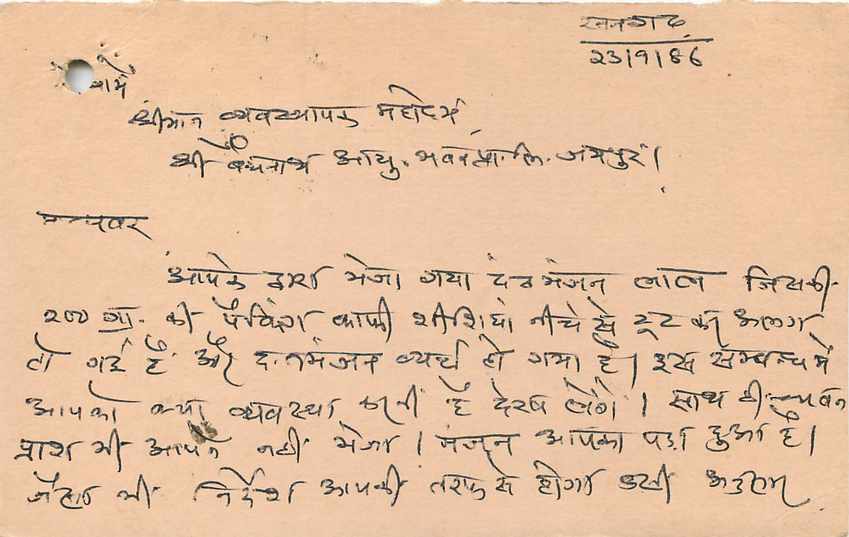 रतनगढ़
23/9/86
सेवामें
श्रीमान व्यवस्थापक महोदय
श्री वैद्यनाथ आयु. भवन प्रा. लि. जयपुर।
मान्यवर
आपके द्वारा भेजा गया दंतमंजन लाल जिसकी
२०० ग्रा. की पैकिंग काफी शीशियां नीचे से टूट कर अलग
हो गई हैं और दन्तमंजन व्यर्थ हो गया है। इस सम्बन्ध में
आपको क्या व्यवस्था करनी है देख लेंगे। साथ ही च्यवन
प्राश भी आपने नहीं भेजा। मंजन आपका पड़ा हुआ है।
जैसा भी निर्देश आपकी तरफ से होगा उसी अनुसार